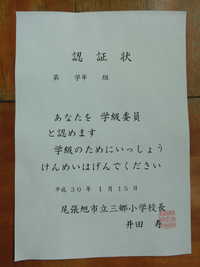 認証状
第 学年 組
あなたを 学級委員
と認めます
学級のためにいっしょう
けんめいはげんでください
平成 30 年 1月 15日
尾張旭市立三郷小学校長
井田 寿